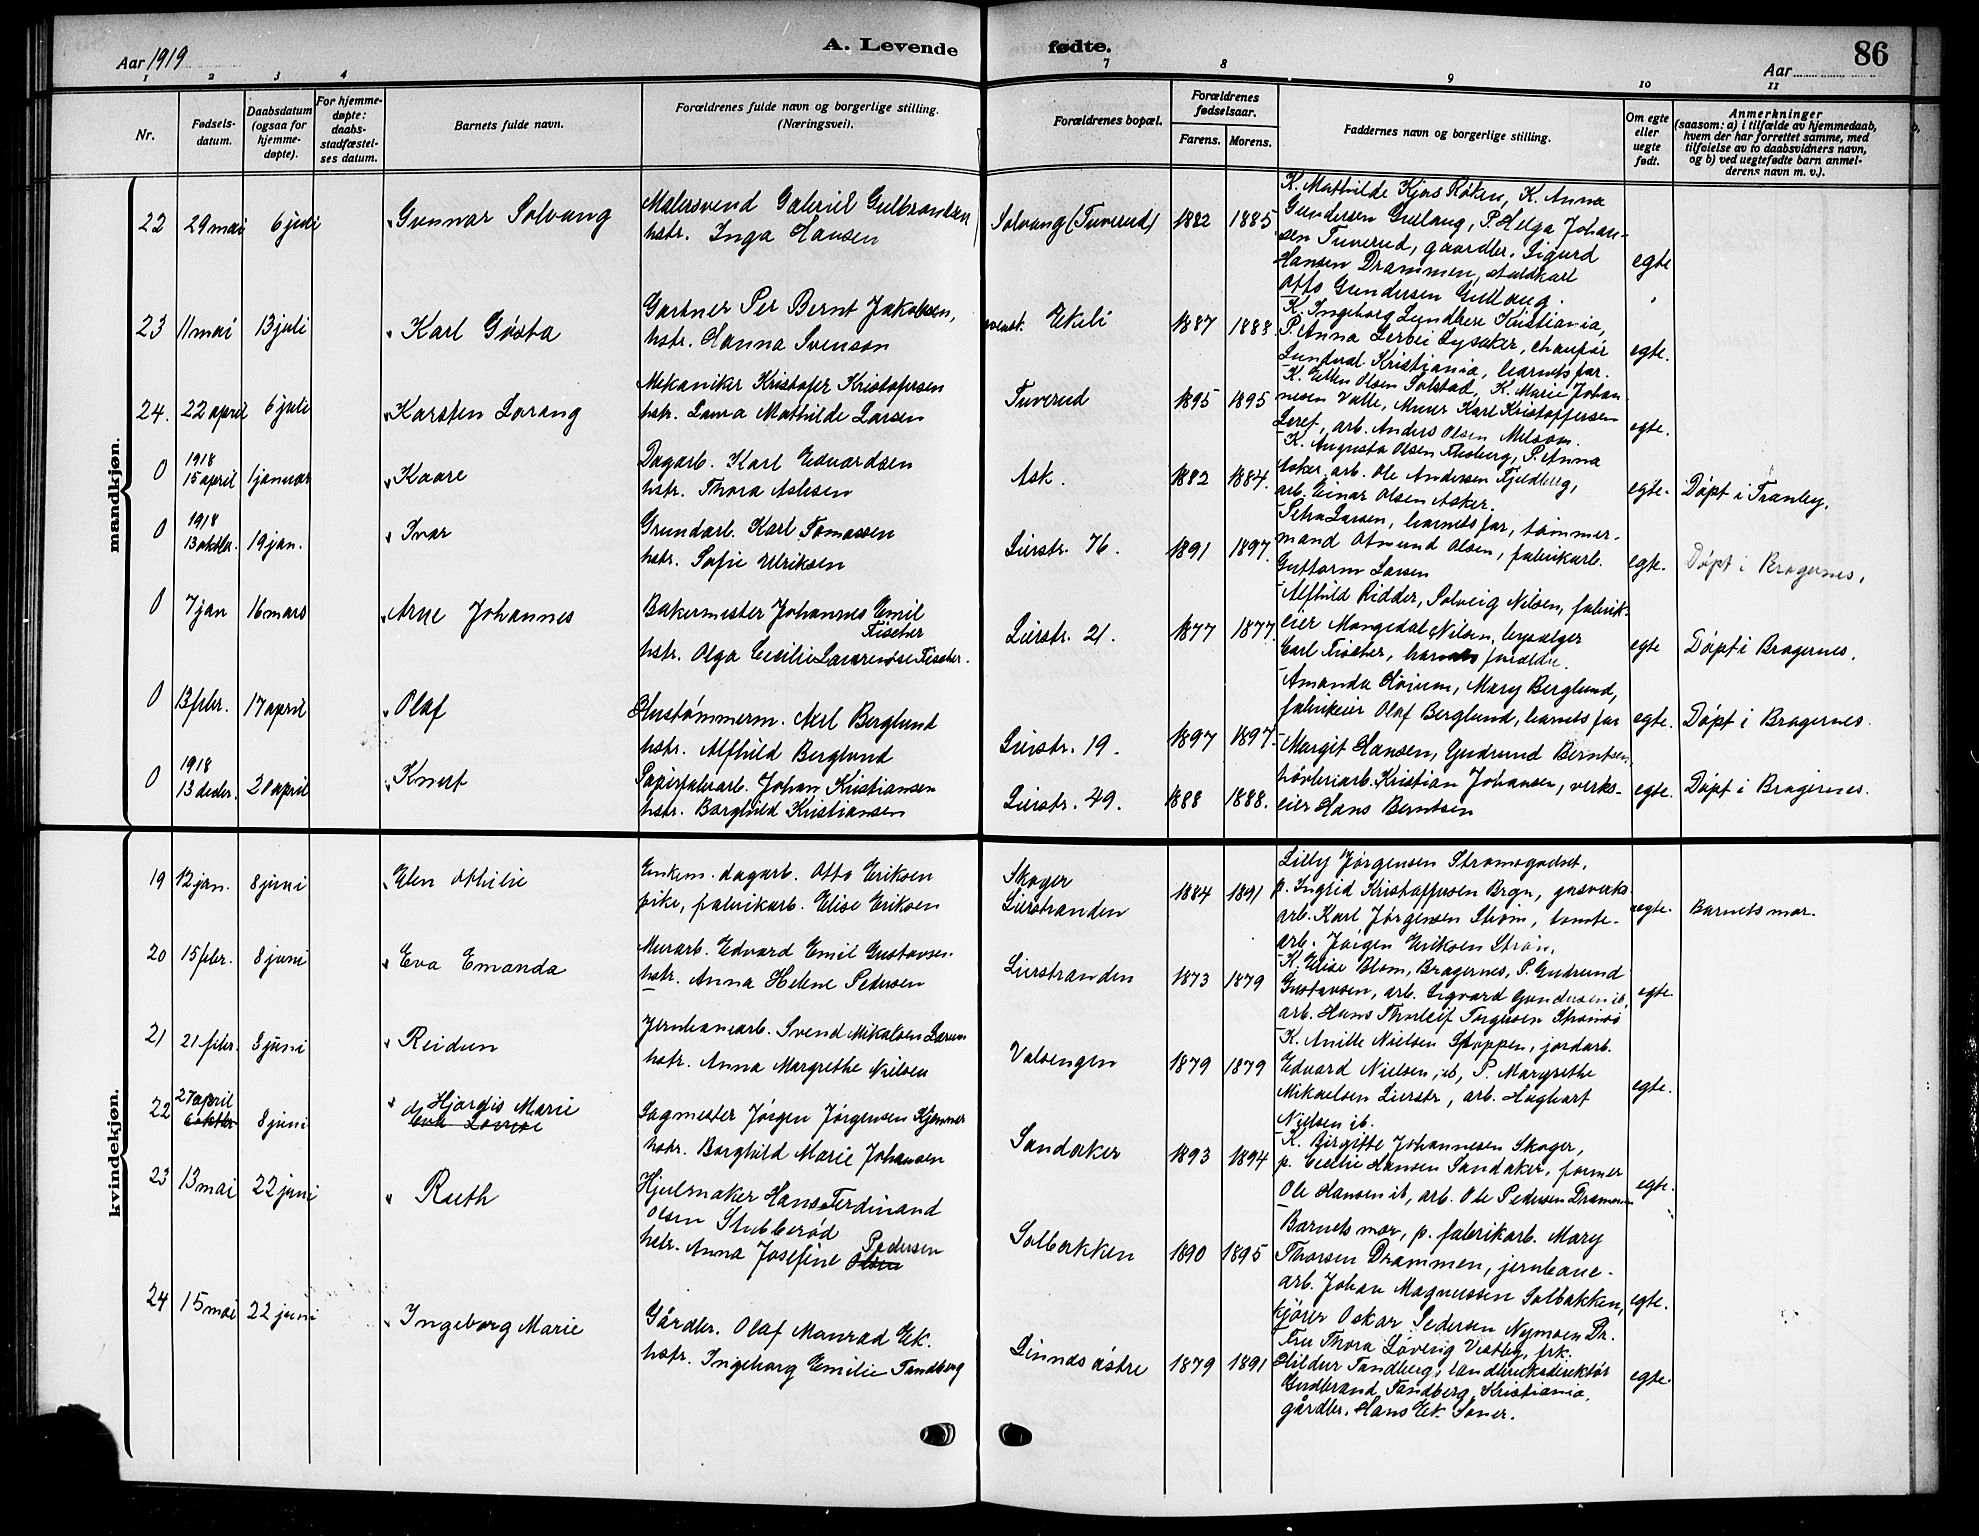 Aar 1919
A. Levende
fødte.
86
Aar
1 2 3 4
7 8 9 10 11
Nr.
Fødsels-
datum.
Daabsdatum
(ogsaa for
hjemme-
døpte).
For hjemme-
døpte:
daabs-
stadfæstel-
ses datum.
Barnets fulde navn.
Forældrenes fulde navn og borgerlige stilling.
(Næringsvei).
Forældrenes bopæl.
Forældrenes
fødselsaar.
Farens. Morens.
Faddernes navn og borgerlige stilling.
Om egte
eller
uegte
født.
Anmerkninger
(saasom: a) i tilfælde av hjemmedaab,
hvem der har forrettet samme, med
tilføielse av to daabsvidners navn,
og b) ved uegtefødte barn anmel-
derens navn m. v.).
mandkjøn.
22 29 mai 6 juli Gunnar Solvang
Malersvend Gabriel Gulbrandsen
hstr. Inga Hansen
Solvang (Tuverud) 1882 1885
K. Mathilde Kjos Røken, K. Anna
Gundersen Gullaug, P. Helga Johan-
sen Tuverud, gaardbr. Sigurd
Hansen Drammen, staldkarl
Otto Gundersen Gullaug.
egte
23 11 mai 13 juli Karl Gøsta
Gartner Per Bernt Jakobsen,
hstr. Hanna Svenson
Ekeli 1887 1888
K. Ingeborg Kristiania,
P. Anna Lysaker, chaufør
Lundval Kristiania, barnets far.
egte.
24. 22 april 6 juli Karsten Lorang
Mekaniker Kristofer Kristofersen
hstr. Mathilde Larsen
Tuverud 1895 1895
K. Ellen Olsen Solstad, K. Marie Johan
nesen Valle, Murer Karl Kristoffersen
arb. Anders Olsen
egte.
0 1918
15 april 1 januar Kaare
Dagarb. Karl Edvardsen
hstr. Thora Aslesen
Ask. 1882 1884.
K. Augusta Olsen P. Anna
Asker, arb. Ole Andersen Fjeldberg,
arb. Einar Olsen Asker.
egte. Døpt i Tranby.
0 1918
13 oktbr. 19 jan. Ivar
Grundarb. Karl Tomassen
hstr. Sofie Ulriksen
Lierstr. 76. 1891 1897.
Petra Larsen, barnets far, tømmer-
mand Olsen, fabrikarb.
Guttorm Larsen
egte. Døpt i Bragernes.
0 7 jan 16 mars Arne Johannes
Bakermester Johannes Emil
Fischer
hstr. Olga Cecilie Fischer.
Lierstr. 21. 1877 1877.
Alfhild Ridder, Solveig Nilsen, fabrik-
eier Nilsen,
Carl Fischer, barnets forældre.
egte Døpt i Bragernes.
0 13 febr. 17 april Olaf
Hustømmerm. Berglund
hstr. Alfhild Berglund
Lierstr. 19. 1897 1897.
Amanda Mary Berglund,
fabrikeier Olaf Berglund, barnets far
egte. Døpt i Bragernes.
0 1918
13 decbr. 20 april Knut
Papirfabrarb. Johan Kristiansen
hstr. Borghild Kristiansen
Lierstr. 49. 1888 1888.
Margit Hansen, Gudrund Berntsen,
høvleriarb. Kristian Johansen, verks-
eier Hans Berntsen
egte. Døpt i Bragernes.
kvindekjøn.
19 12 jan. 8 juni Elen Othilie
Enkem. dagarb. Otto Eriksen
pike, fabrikarb. Elise Eriksen
Skoger
Lierstranden 1884 1891
Lilly Jørgensen Strømsgodset,
p. Ingrid Kristoffersen Bragn, gasverks
arb. Karl Jørgensen Strøm, tomte-
arb. Jørgen Eriksen Strøm,
uegte. Barnets mor.
20 15 febr. 8 juni Eva Emanda
Murarb. Edvard Emil Gustavsen.
hstr. Anna Helene Pedersen
Lierstranden 1873 1879
K. Elise Blom, Bragernes, P. Gudrund
Gustavsen, arb. Sigvard Gundersen ib.
arb. Hans Thorleif Torgersen Strømsø
egte.
21 21 febr. 8 juni Reidun
Jernbanearb. Svend Mikalsen
hstr. Anna Margrethe Nielsen
Valsengen 1879 1879
K. Anitte Nielsen Stoppen, jordarb.
Edvard Nielsen, ib, P. Margrethe
Mikaelsen Lierstr, arb.
Nielsen ib.
egte.
22 27 april
6 oktbr 8 juni Hjørdis Marie
Sagmester Jørgen Jørgensen
hstr. Borghild Marie Johansen
Sandaker 1893 1894
K. Birgitte Johannesen Skoger,
p. Cecilie Hansen Sandaker, former
Ole Hansen ib, arb. Ole Pedersen Drammen
egte.
23 13 mai 22 juni Ruth
Hjulmaker Hans Ferdinand
Olsen Stubberød
hstr. Anna Josefine Olsen Pedersen
Solbakken 1890 1895
Barnets mor, p. fabrikarb. Mary
Thorsen Drammen, jernbane-
arb. Johan Magnussen Solbakken,
kjører Oskar Pedersen Nymoen Dr.
egte.
24 15 mai 22 juni Ingeborg Marie
Gårdbr. Olaf Manrad Ek.
hstr. Ingeborg Emilie Tandberg
Linnes østre 1879 1891
Fru Thora Løvlig Vestby, frk.
Hildur Tandberg, landbruksdirektør
Gudbrand Tandberg Kristiania,
gårdbr. Hans Ek Soner.
egte.